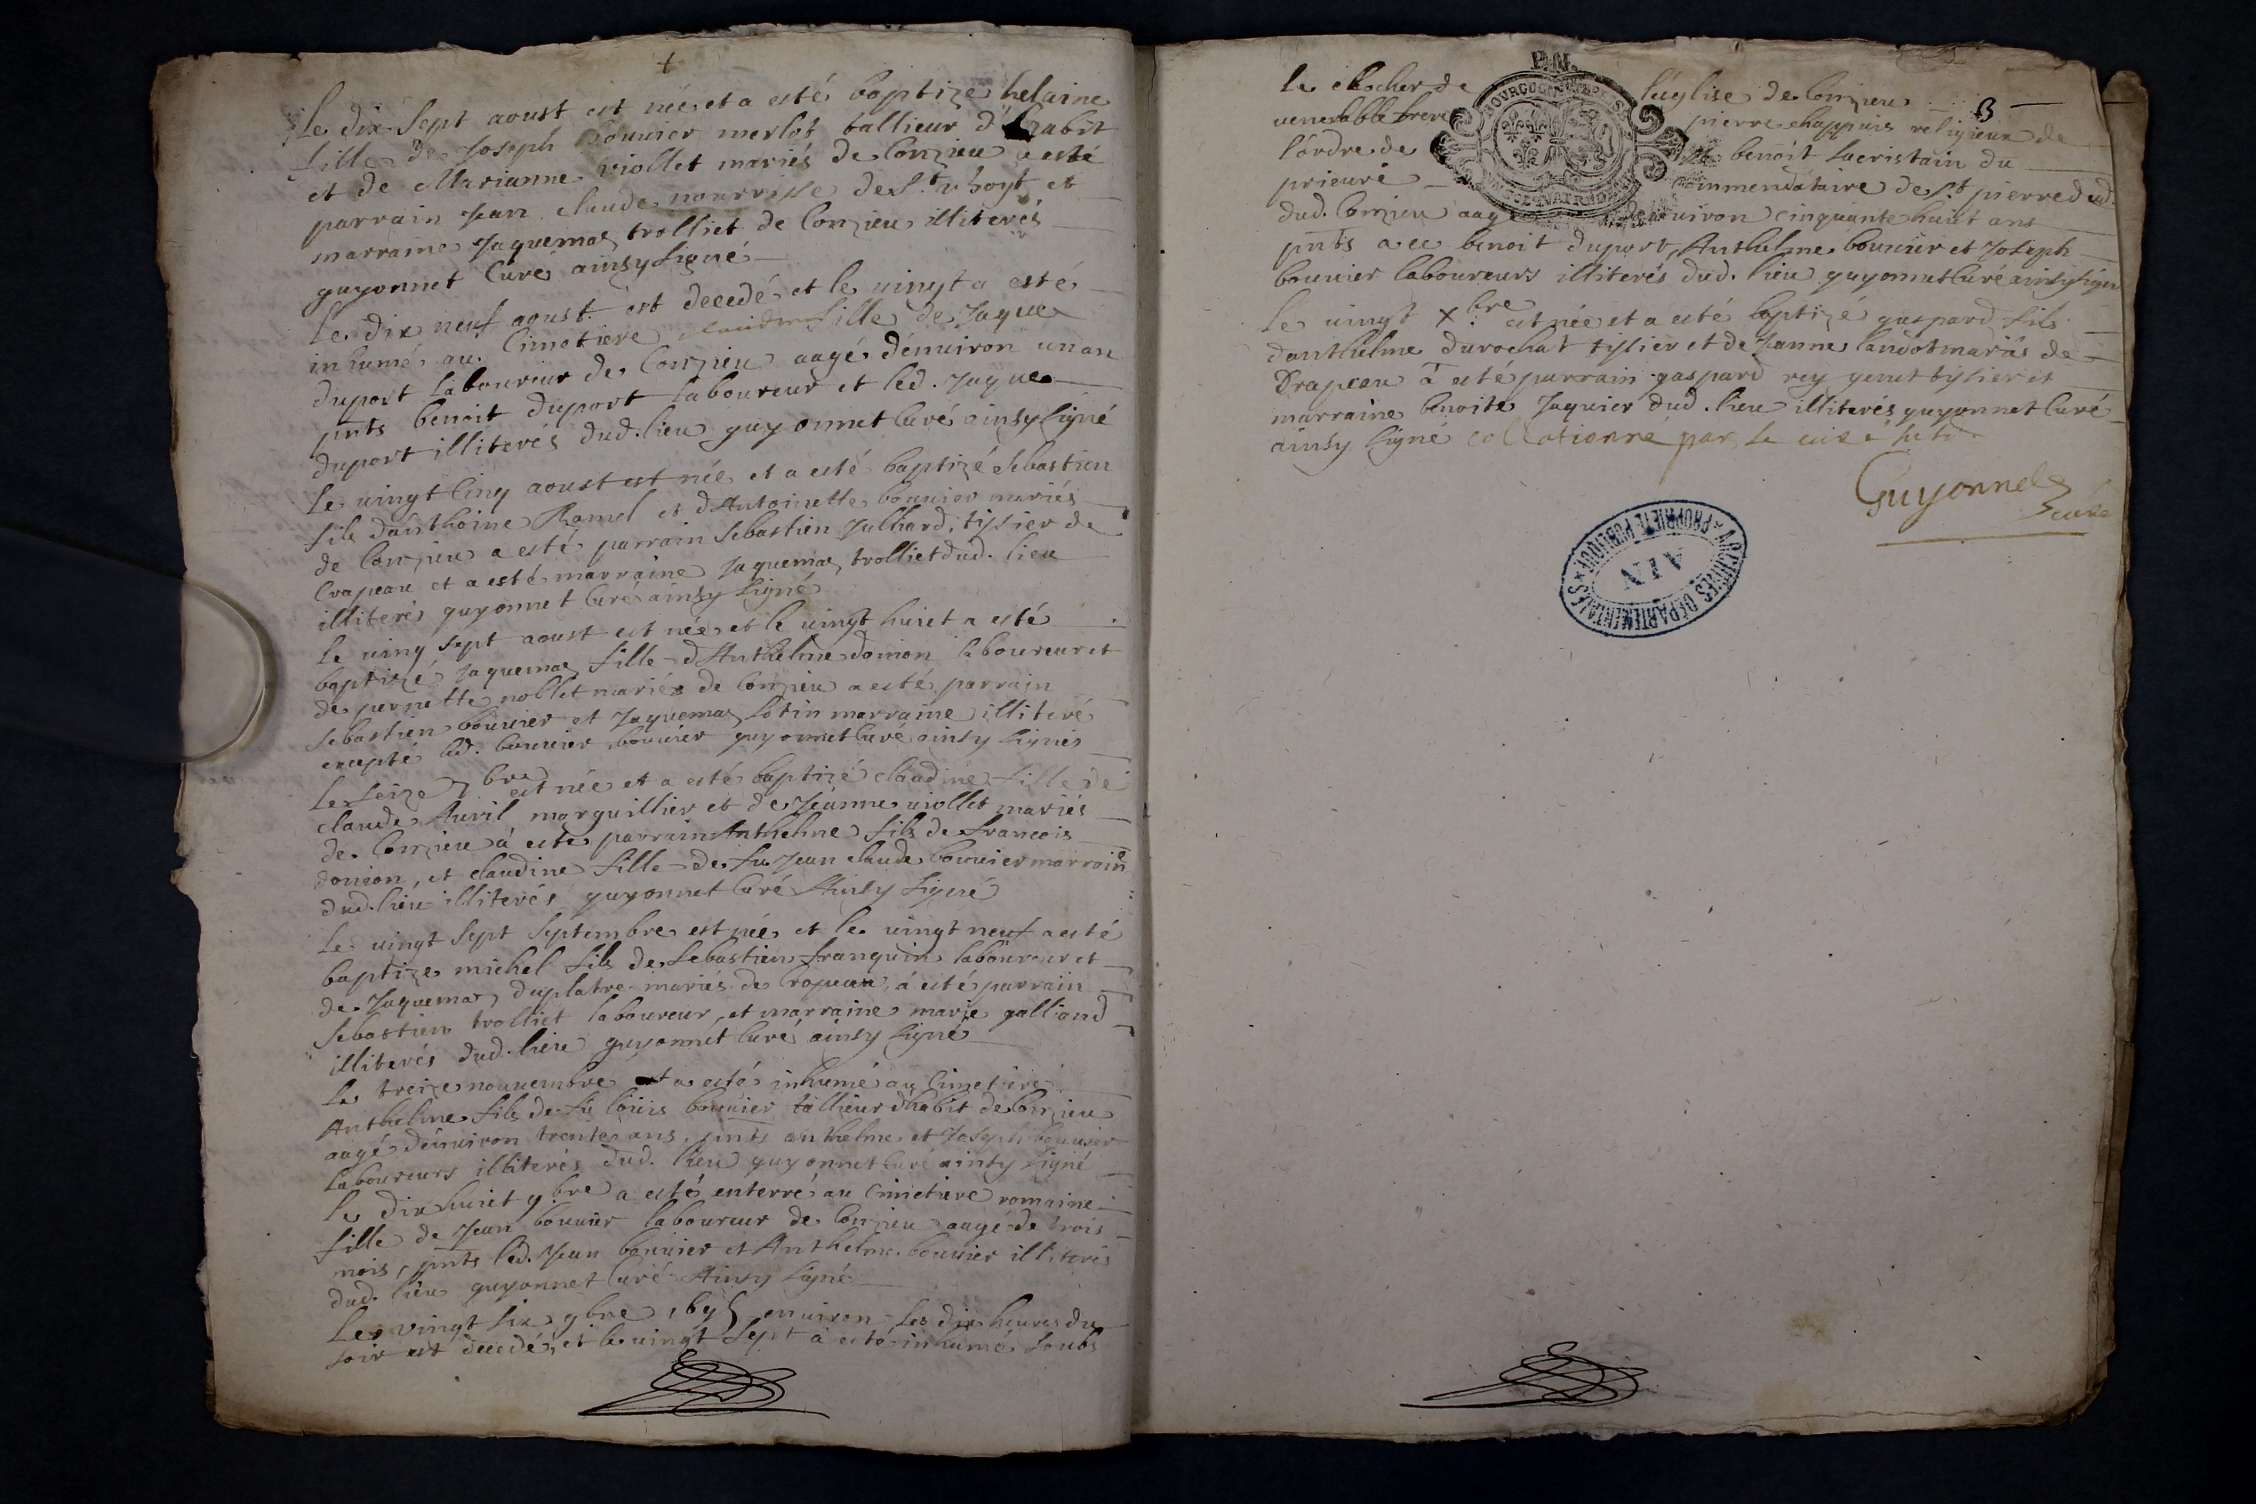 Le dix sept aoust est née et a esté baptize helaine
fille de Joseph Bouvier merlot tallieur d'habit
et de Marianne viollet mariés de Conzieu a esté
parrain Jean claude nourrisse de St
marraine Jaquema trolliet de Conzieu illiterés
guyonnet Curé ainsy signé
Le dix neuf aoust est decedé et le uingt a esté
inhumé au Cimetiere claudine fille de Jaque
duport laboureur de Conzieu aagé denuiron un an
pnts benoit duport laboureur et led. Jaque
duport illiterés dud. lieu guyonnet Curé ainsy signé
Le uingt cinq aoust est née et a esté baptizé Sebastien
fils d'anthoine Ramel et d'Antoinette bouuier mariés
de Conzieu a esté parrain Sebastien Julliard, tissier de
Crapeau et a esté marraine Jaquema trolliet dud. lieu
illiterés guyonnet Curé ainsy signé
Le uing sept aoust est née et le uingt huict a esté
baptizé Jaquema fille d'Anthelme doncon laboureur et
de pernette nollet mariés de Conzieu a esté parrain
Sebastien bouuier et Jaquema Cotin marraine illiteré
excepté led. bouuier bouuier guyonnet Curé ainsy signés
Le Seize 7bre est née et a esté baptizé claudine fille de
claude Auril marguillier et de Jeanne uiollet mariés
de Conzieu à esté parrain Anthelme fils de francois
doncon, et claudine fille de fu Jean claude bouuier marraine
dud. lieu illiterés guyonnet Curé Ainsy signé
Le uingt sept Septembre est née et le uingt neuf a esté
baptize michel fils de Sebastien franquin laboureur et
de Jaquema duplatre mariés de Crapeau, à esté parrain
Sebastien trolliet laboureur, et marraine marie galliand
illiterés dud. lieu guyonnet Curé ainsy signé
Le treize nouuembre a esté inhumé au Cimetiere
Anthelme fils de fu louis bouuier tallieur d'habit de Conzieu
aagé denuiron trente ans, pnts anthelme et Joseph bouuier
laboureurs illiterés dud. lieu guyonnet Curé ainsy signé
Le dix huict 9bre a esté enterré au Cimetiere romaine
fille de Jean bouuier laboureur de Conzieu aagé de trois
mois, pnts led. Jean bouuier et Anthelme bouuier illiterés
dud. lieu guyonnet Curé Ainsy signé
Le vingt six 9bre 1695 enuiron les dix heures du
soir est decedé, et le uingt sept à esté inhumé Soubs
B
le clocher de l'église de Conzieu
uenerable frere pierre chappuis religieux de
l'ordre de St benoit Sacristain du
prieuré Commendataire de St pierre dud.
dud. Conzieu aagé denuiron cinquante huict ans
pnts a ce benoit duport, Anthelme bouuier et Joseph
bouuier laboureurs illiterés dud. lieu guyonnet Curé ainsy signé
Le uingt Xbre est née et a esté baptizé gaspard fils
d'anthelme durochat tissier et de Jeanne mariés de
Drapeau à esté parrain gaspard rey genet tissier et
marraine benoite Jaquier dud. lieu illiterés guyonnet Curé
ainsy signé collationné par le curé susd
Guyonnet
curé
ARCHIVES DÉPARTEMENTALES
AIN
PROPRIÉTÉ PUBLIQUE